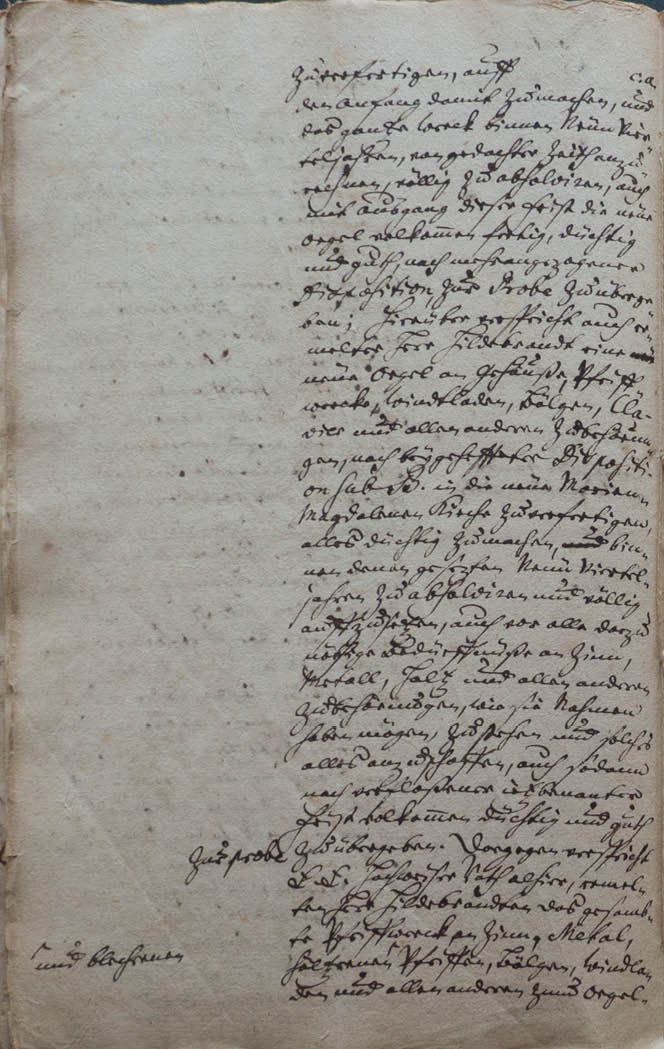 Zuverfertigen, auff c. a.
den Anfang damit Zumachen, und
das gantze Werck binnen Neün Vier-
teljahren, von gedachter Zeith anzu
rechnen, völlig Zu absolviren, auch
mit Ausgang dieser Frist die neüe
Orgel volkom̅en fertig, düchtig
und guth, nach mehrangezogener
Disposition, Zur Probe Zuüberge-
ben; Hierüber verspricht auch er-
melter Herr Hildebrandt eine
neüe Orgel an Gehäuße, Pfeiff
wercke, Windtladen, Bälgen, Cla-
vier und allen anderen Zubehörun
gen, nach beygehefteter Dispositi-
on sub B. in die neüe Marien
Magdalenen Kirche Zuverfertigen,
alles düchtig Zumachen, und bin-
nen denen gesezten Neün Viertel-
jahren Zu absolviren und völlig
auffzusezen, auch vor alle darzu
nöthige Bedürffnüße an Zinn,
Metall, Holtz und allen anderen
Zubehörungen, wie sie Nahmen
haben mögen, Zustehen und solches
alles anzuschaffen, auch sodann
nach verfloßener
Frist volkom̅en düchtig und guth
Zur Probe Zuübergeben. Dargegen verspricht
E. E. Hochweiser Rath alhier, ermel-
ten Herr Hildebrandten das gesamb-
te Pfeiffwerck an Zinn, Metal,
höltzernen ⌈und blechernen Pfeiffen, Bälgen, Windla
den und allen anderen Zur Orgel-